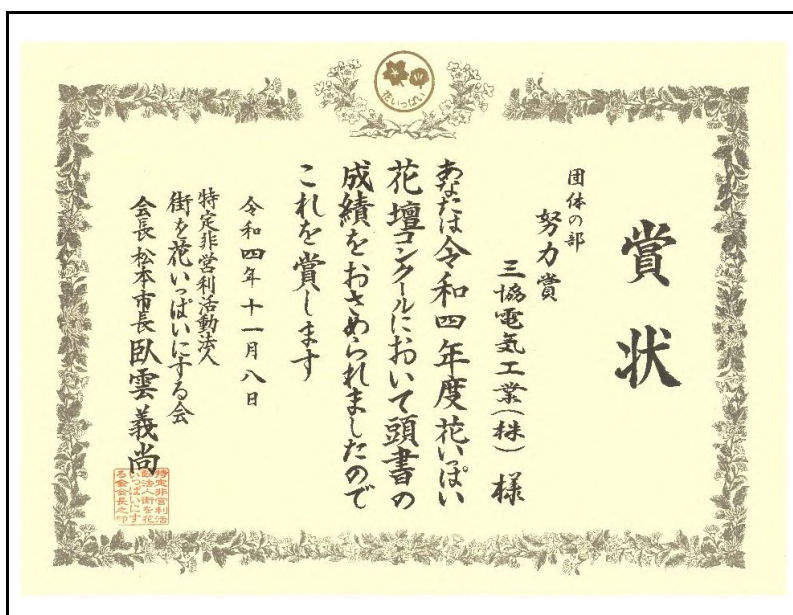 花いっぱい
賞状
団体の部
努力賞
三協電気工業(株) 様
あなたは令和四年度花いっぱい
花壇コンクールにおいて頭書の
成績をおさめられましたので
これを賞します
令和四年十一月八日
特定非営利活動法人
街を花いっぱいにする会
会長 松本市長 臥雲義尚
特定非営利活
動法人街を花
いっぱいにす
る会会長之印